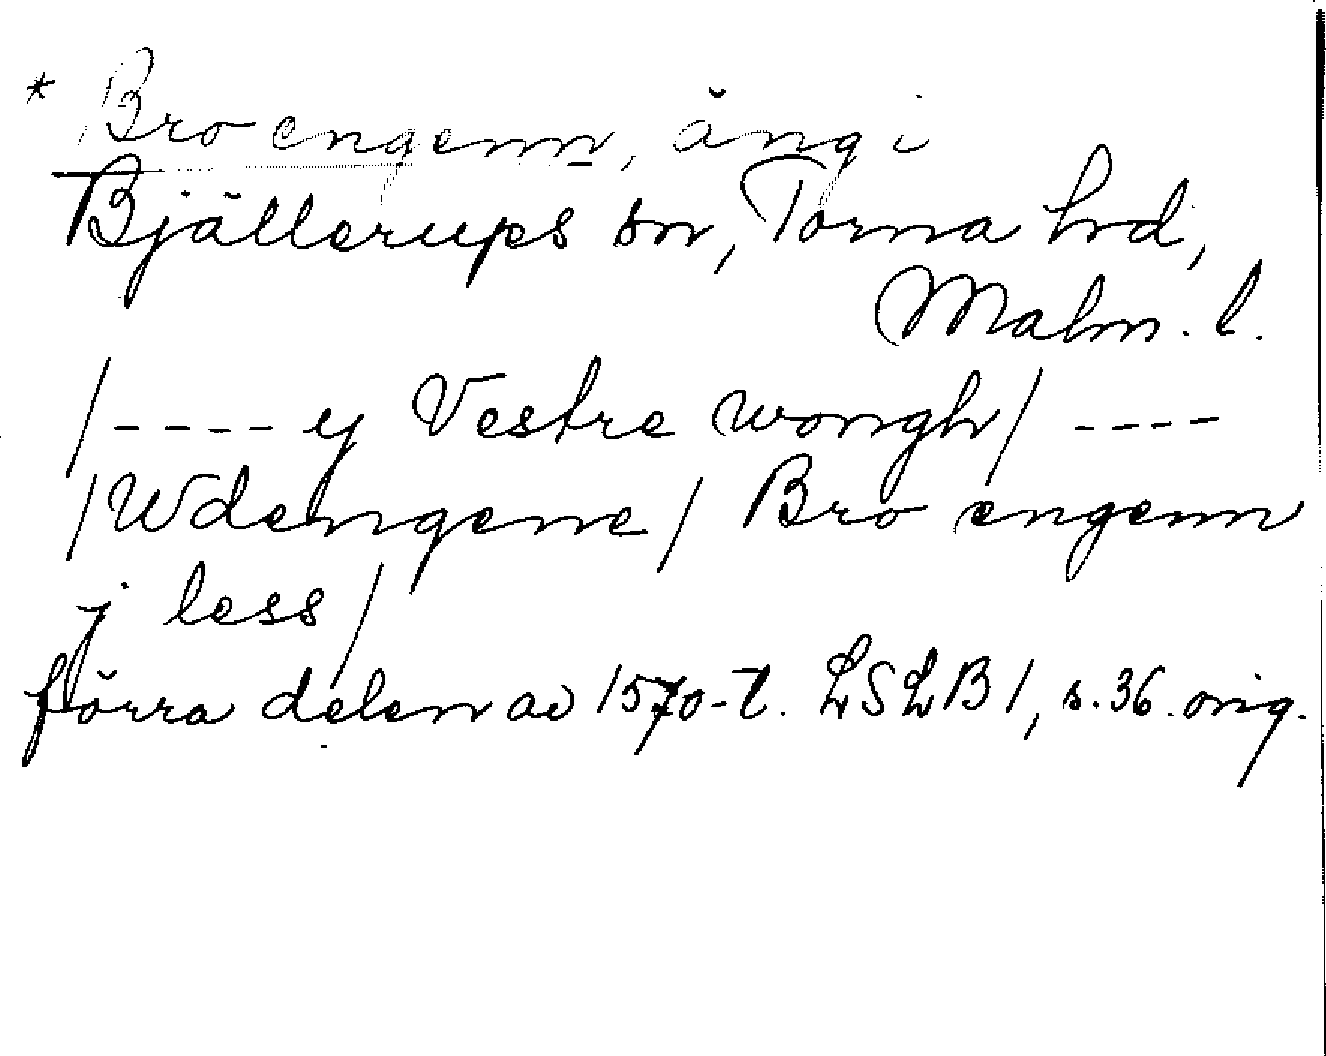 * Bro engenn, äng i
Bjällerups sn, Torna hd,
Malm. l.
/---- y Vestre wongh/ ----
/Wdengene/ Bro engenn
j less/
förra delen av 1570-t. LSLB 1, s. 36. orig.